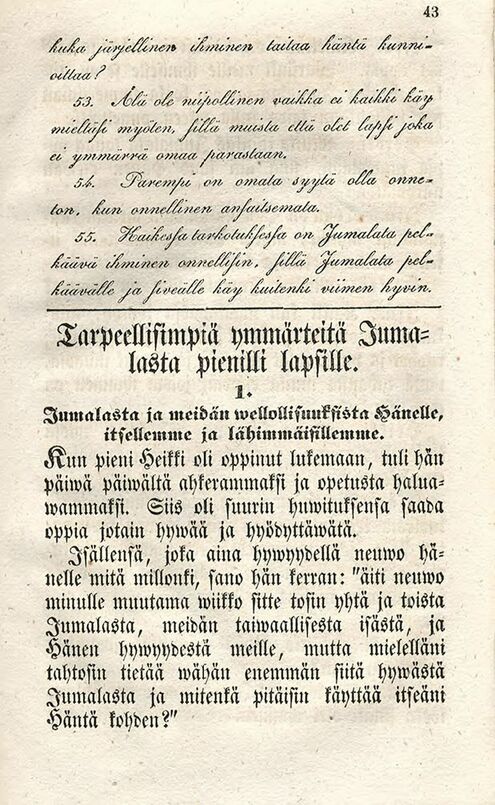 43
kuka järjellinen ihminen taitaa häntä kunni-
oittaa?
53. Älä ole niipollinen vaikka ei kaikki käy
mieltäsi myöten, sillä muista että olet lapsi joka
ei ymmärrä omaa parastaan.
54. Parempi on omata syytä olla onne-
ton, kun onnellinen ansaitsemata.
55. Kaikessa tarkotuksessa on Jumalata pel-
käävä ihminen onnellisin, sillä Jumalata pel-
käävälle ja siveälle käy kuitenki viimen hyvin.
Tarpeellisimpiä ymmärteitä Juma-
lasta pienilli lapsille.
1.
Jumalasta ja meidän wellollisuuksista Hänelle,
itsellemme ja lähimmäisillemme.
Kun pieni Heikki oli oppinut lukemaan, tuli hän
päiwä päiwältä ahkerammaksi ja opetusta halua-
wammaksi. Siis oli suurin huwituksensa saada
oppia jotain hywää ja hyödyttäwätä.
Isällensä, joka aina hywyydellä neuwo hä-
nelle mitä millonki, sano hän kerran: "äiti neuwo
minulle muutama wiikko sitte tosin yhtä ja toista
Jumalasta, meidän taiwaallisesta isästä, ja
Hänen hywyydestä meille, mutta mielelläni
tahtosin tietää wähän enemmän siitä hywästä
Jumalasta ja mitenkä pitäisin käyttää itseäni
Häntä kohden?"